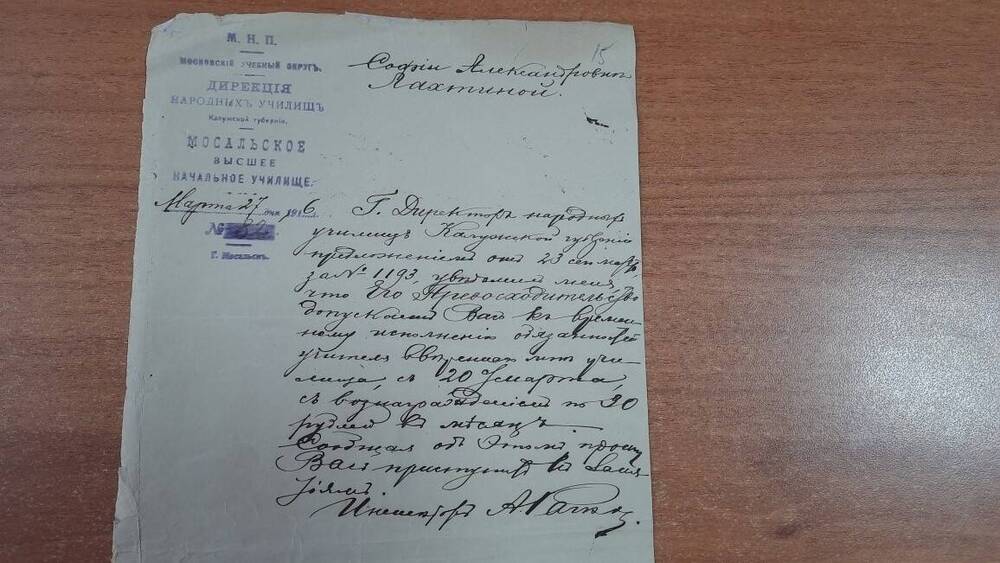 15
М. Н. П.
Московскій учебный округъ.
ДИРЕКЦІЯ
НАРОДНЫХЪ УЧИЛИЩЪ
Калужской губерніи.
МОСАЛЬСКОЕ
ВЫСШЕЕ
НАЧАЛЬНОЕ УЧИЛИЩЕ.
Марта 27 дня 1916
№ 82
Г. Мосальскъ.
Софіи Александровнѣ
Лахтиной.
Г. Директоръ народныхъ
училищъ Калужской губерніи
предложеніемъ отъ 23 сего марта
за № 1193, увѣдомилъ меня,
что Его Превосходительство
допускаетъ Васъ къ времен-
ному исполненію обязанностей
учителя ввѣреннаго мнѣ учи-
лища, съ 20 марта,
съ вознагражденіемъ по 30
рублей въ мѣсяцъ.
Сообщая объ этомъ прошу
Васъ приступить къ заня-
тіямъ.
Инспекторъ А.